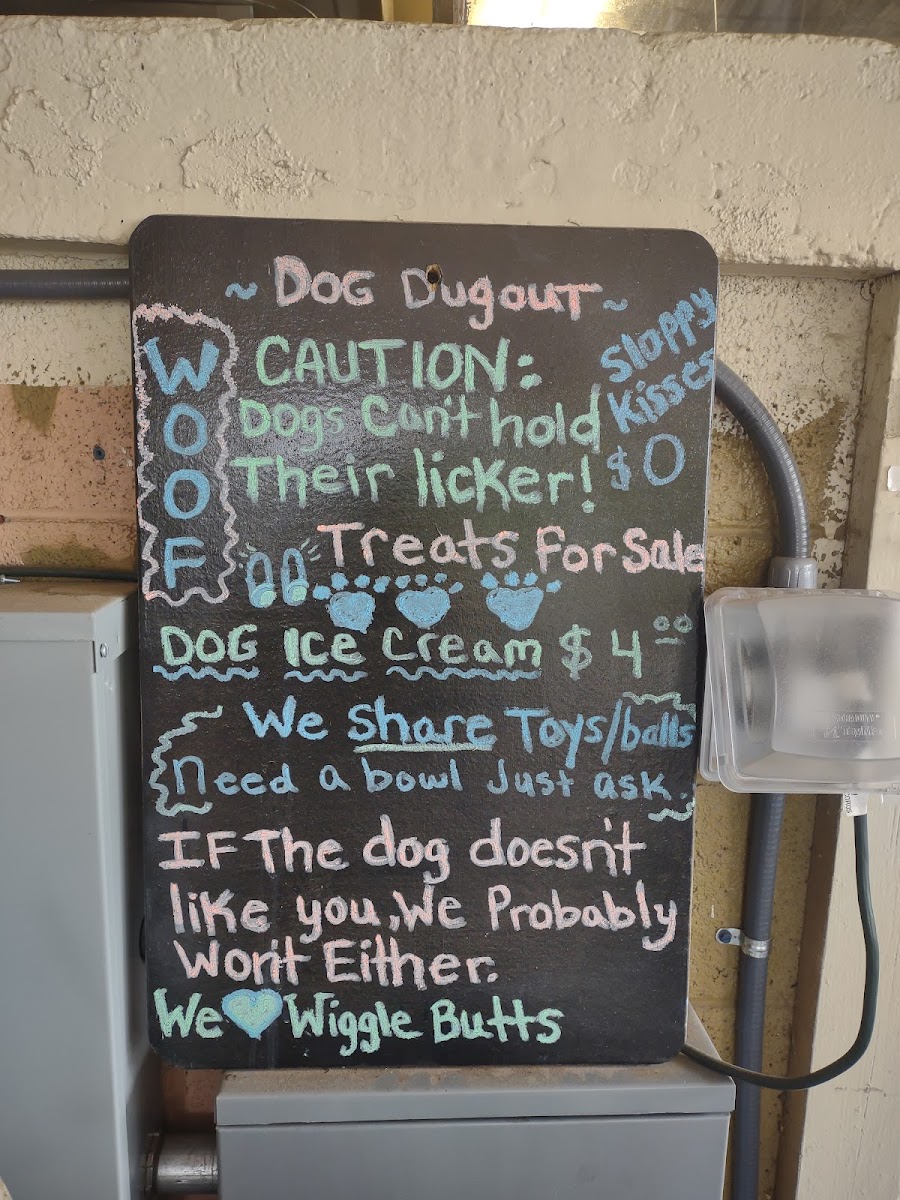 ~ DOG Dugout ~
WOOF
CAUTION:
Dogs Can't hold
Their licker!
Sloppy
Kisses
$0
Treats For Sale
DOG Ice Cream $4.00
We Share Toys/balls
need a bowl Just ask.
IF The dog doesn't
like you, We Probably
Won't Either.
We ♥ Wiggle Butts